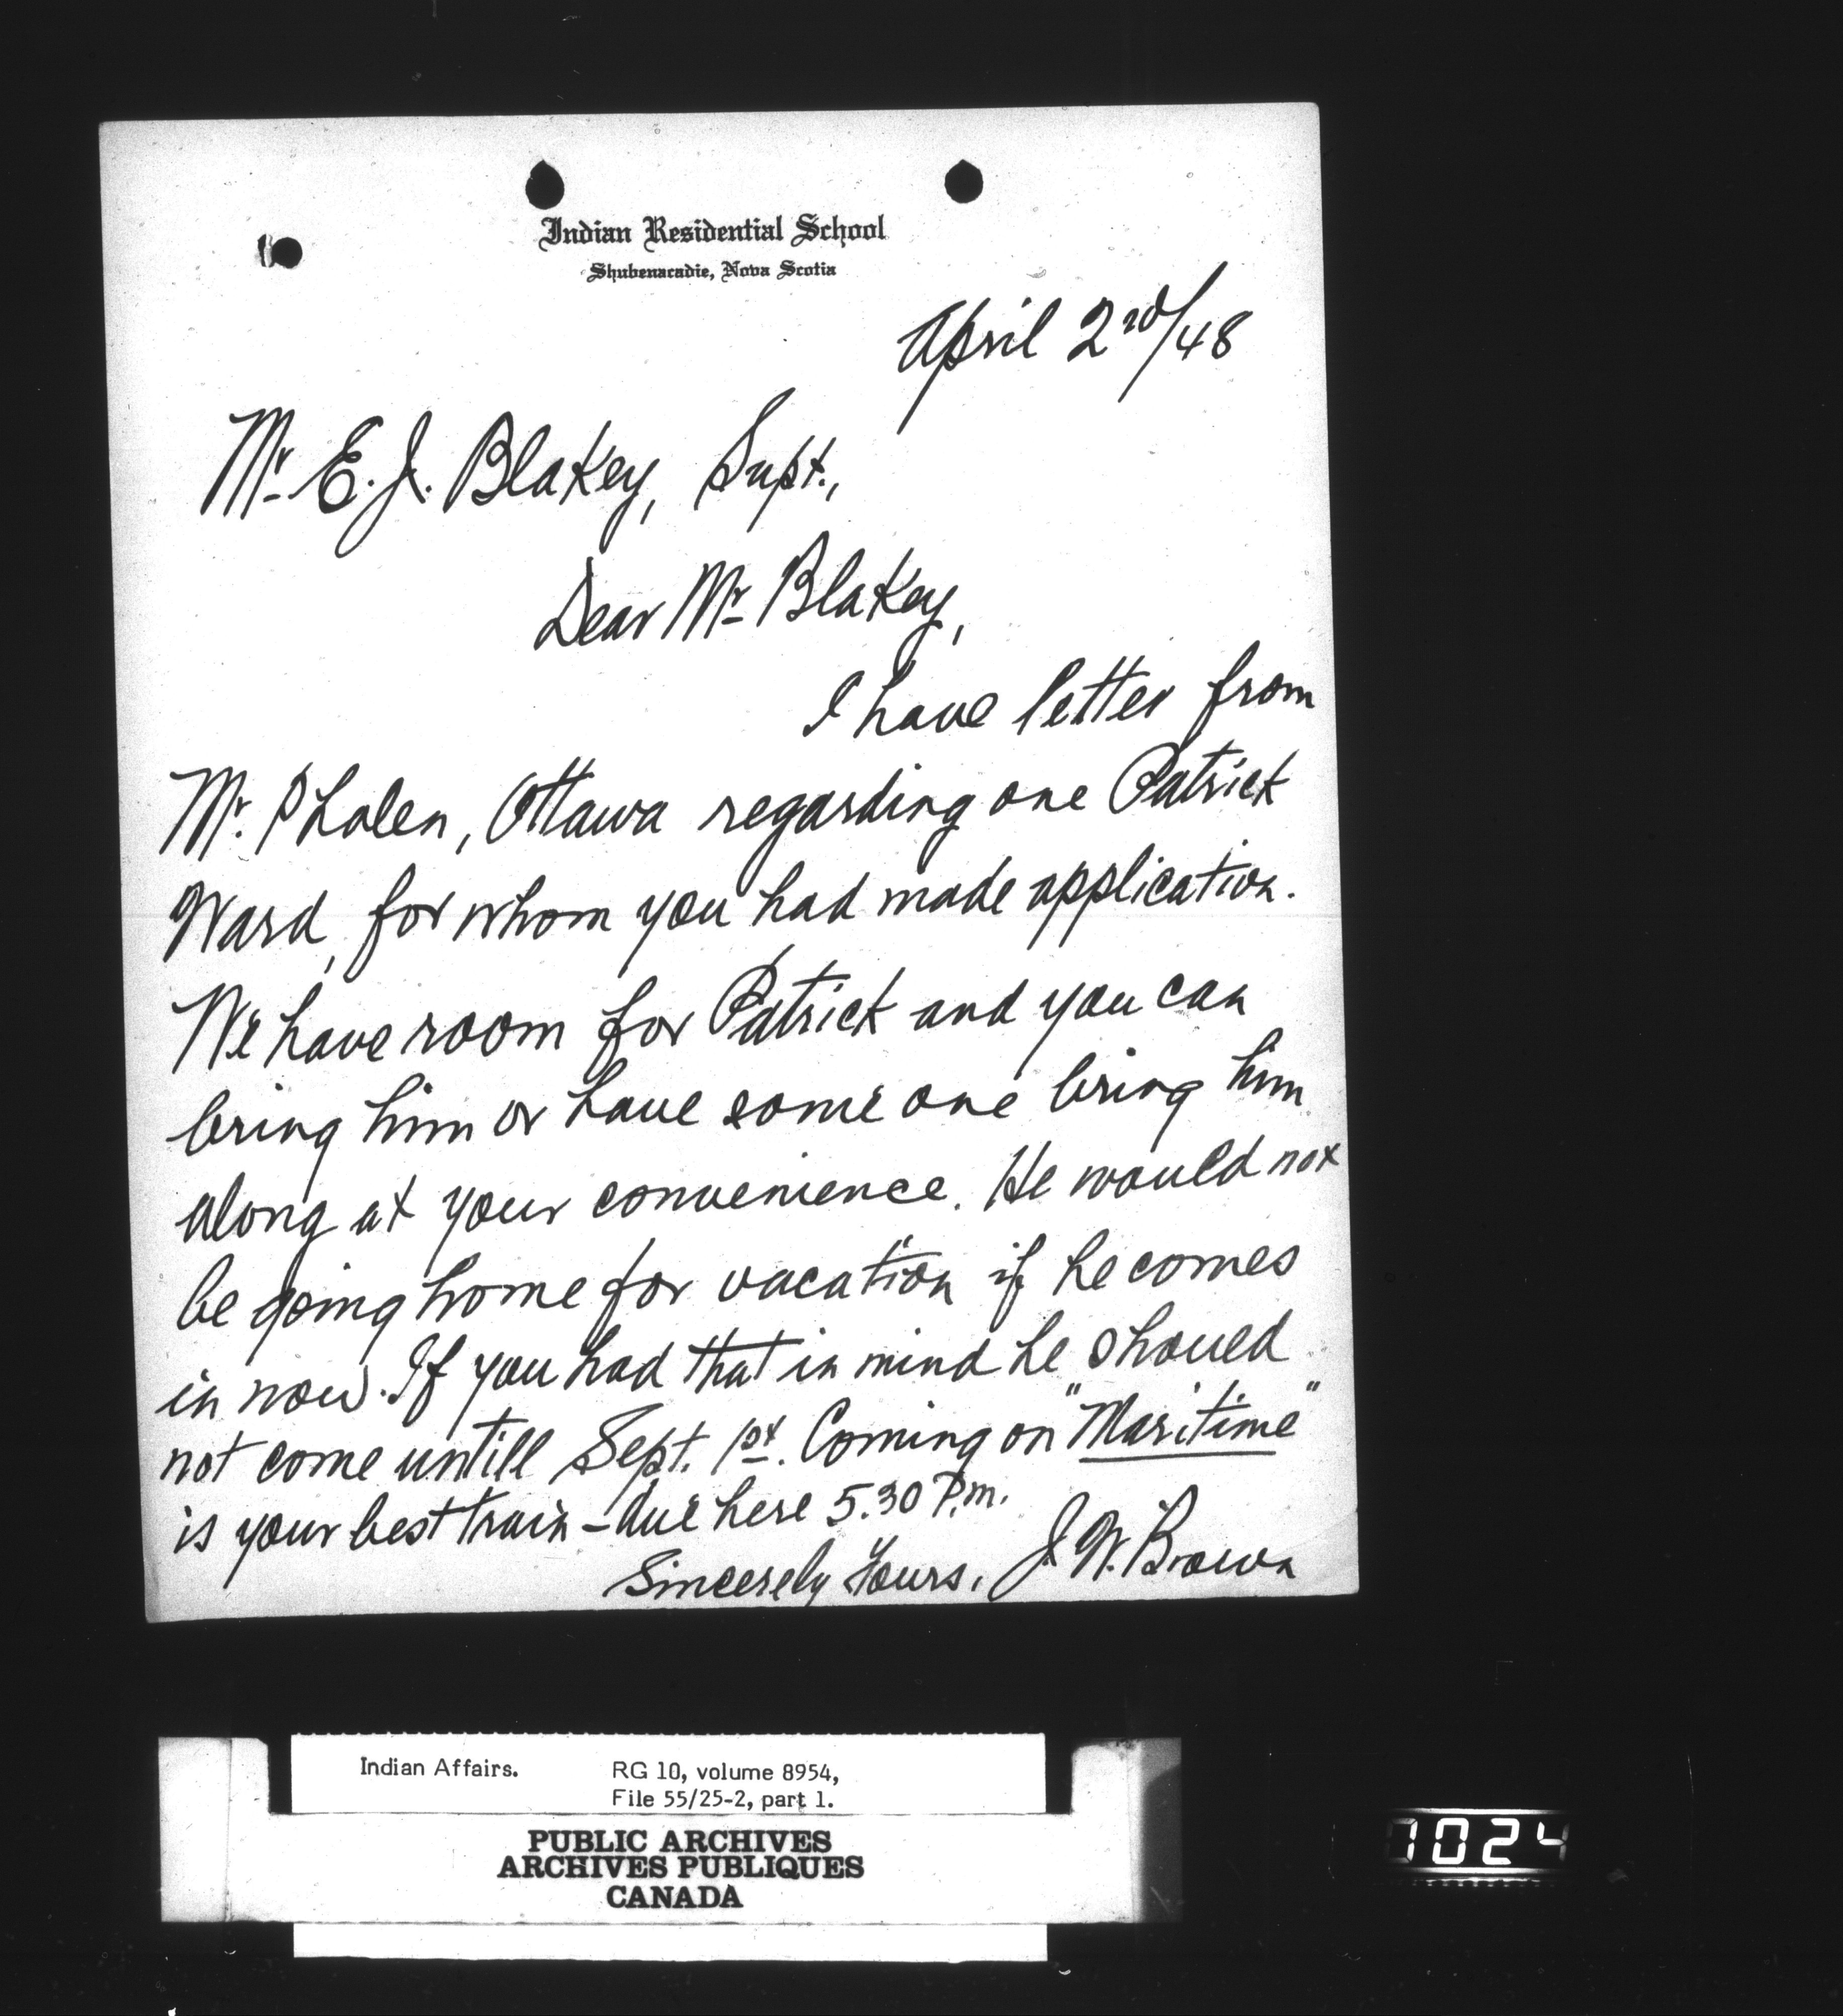 Indian Residential School
Shubenacadie, Nova Scotia
April 2nd/48
Mr. E. J. Blakey, Supt.,
Dear Mr. Blakey,
I have letter from
Mr. Phalen, Ottawa regarding one Patrick
Ward, for whom you had made application.
We have room for Patrick and you can
bring him or have some one bring him
along at your convenience. He would not
be going home for vacation if he comes
in now. If you had that in mind he should
not come untill Sept. 1st. Coming on "Maritime"
is your best train – due here 5.30 P.m.
Sincerely Yours, J. W. Brown
Indian Affairs. RG 10, volume 8954,
File 55/25-2, part 1.
PUBLIC ARCHIVES
ARCHIVES PUBLIQUES
CANADA
7024